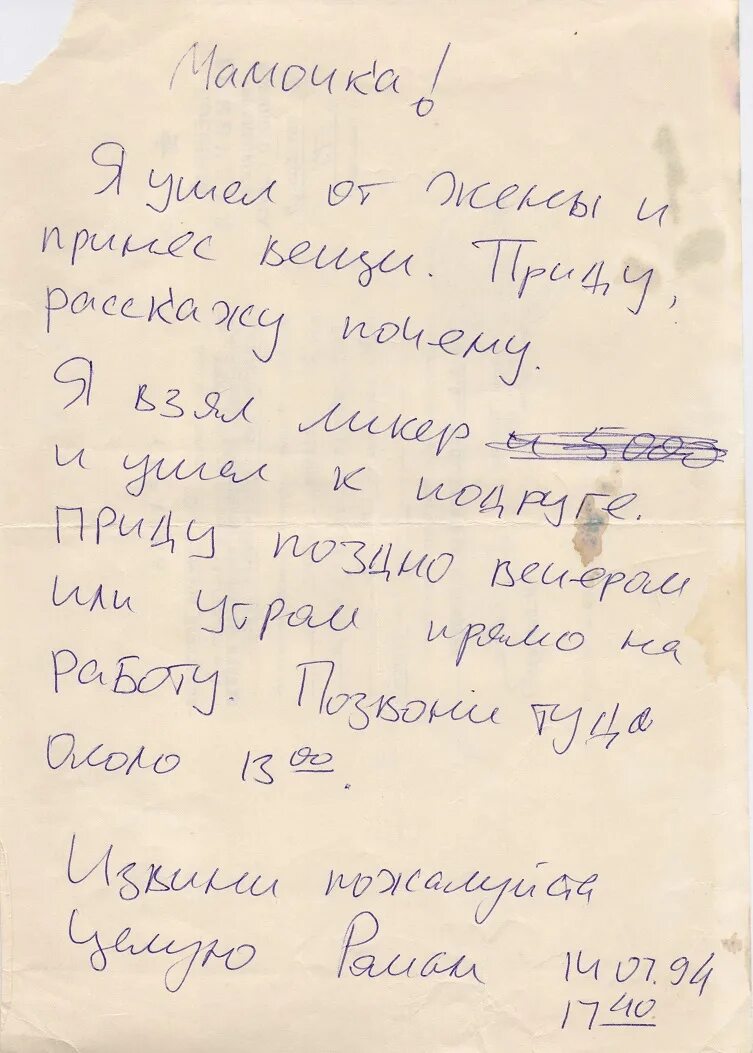 Мамочка!
Я ушел от жены и
принес вещи. Приду,
расскажу почему.
Я взял ликер и 5000
и ушел к подруге.
Приду поздно вечером
или утром прямо на
работу. Позвони туда
около 13 00.
Извини пожалуйста
Целую Роман 14 07.94
17 40